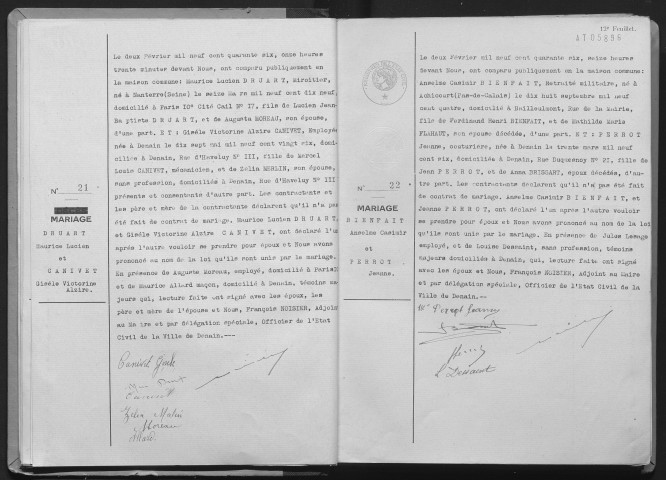 N° 21
MARIAGE
DRUART
Maurice Lucien
et
CANIVET
Gisèle Victorine
Alzire.
Le deux Février mil neuf cent quarante six, onze heures
trente minutes devant Nous, ont comparu publiquement en
la maison commune: Maurice Lucien DRUART, miroitier,
né à Nanterre(Seine) le seize Mars mil neuf cent dix neuf,
domicilié à Paris 10° Cité Cail N° 17, fils de Lucien Jean
Baptiste DRUART, et de Augusta MOREAU, son épouse,
d'une part. ET : Gisèle Victorine Alzire CANIVET, Employée
née à Denain le dix sept mai mil neuf cent vingt six, domi-
ciliée à Denain, Rue d'Haveluy N° III, fille de Marcel
Louis CANIVET, mécanicien, et de Zélia MERLIN, son épouse,
sans profession, domiciliés à Denain, Rue d'Haveluy N° III
présents et consentents d'autre part. Les contractents et
les père et mère de la contractente déclarent qu'il n'a pas
été fait de contrat de mariage. Maurice Lucien DRUART,
et Gisèle Victorine Alzire CANIVET, ont déclaré l'un
après l'autre vouloir se prendre pour époux et Nous avons
prononcé au nom de la loi qu'ils sont unis par le mariage.
En présence de Auguste Moreau, employé, domicilié à Paris
et de Maurice Allard maçon, domicilié à Denain, témoins ma-
jeurs qui, lecture faite ont signé avec les époux, les
père et mère de l'épouse et Nous, François NOISIER, Adjoint
au Maire et par délégation spéciale, Officier de l'Etat
Civil de la Ville de Denain.---
Canivet Gisèle
Moreau
12° Feuillet.
N° 22
MARIAGE
BIENFAIT
Anselme Casimir
et
PERROT
Jeanne.
Le deux Février mil neuf cent quarante six, seize heures
devant Nous, ont comparu publiquement en la maison commune:
Anselme Casimir BIENFAIT, Retraité militaire, né à
Achicourt(Pas-de-Calais) le dix huit septembre mil neuf
cent quatre, domicilié à Bailleulmont, Rue de la Mairie,
fils de Ferdinand Henri BIENFAIT, et de Mathilde Marie
FLAHAUT, son épouse décédée, d'une part. ET : PERROT
Jeanne, couturière, née à Denain le trente mars mil neuf
cent six, domiciliée à Denain, Rue Duquesnoy N° 21, fille de
Jean PERROT, et de Anna BRISSART, époux décédés, d'au-
tre part. Les contractents déclarent qu'il n'a pas été fait
de contrat de mariage. Anselme Casimir BIENFAIT, et
Jeanne PERROT, ont déclaré l'un après l'autre vouloir
se prendre pour époux et Nous avons prononcé au nom de la loi
qu'ils sont unis par le mariage. En présence de Jules Lesage
employé, et de Louise Dessaint, sans profession, témoins
majeurs domiciliés à Denain, qui, lecture faite, ont signé
avec les époux et Nous, François NOISIER, Adjoint au Maire
et par délégation spéciale, Officier de l'Etat Civil de la
Ville de Denain.---
Perrot Jeanne
L Dessaint